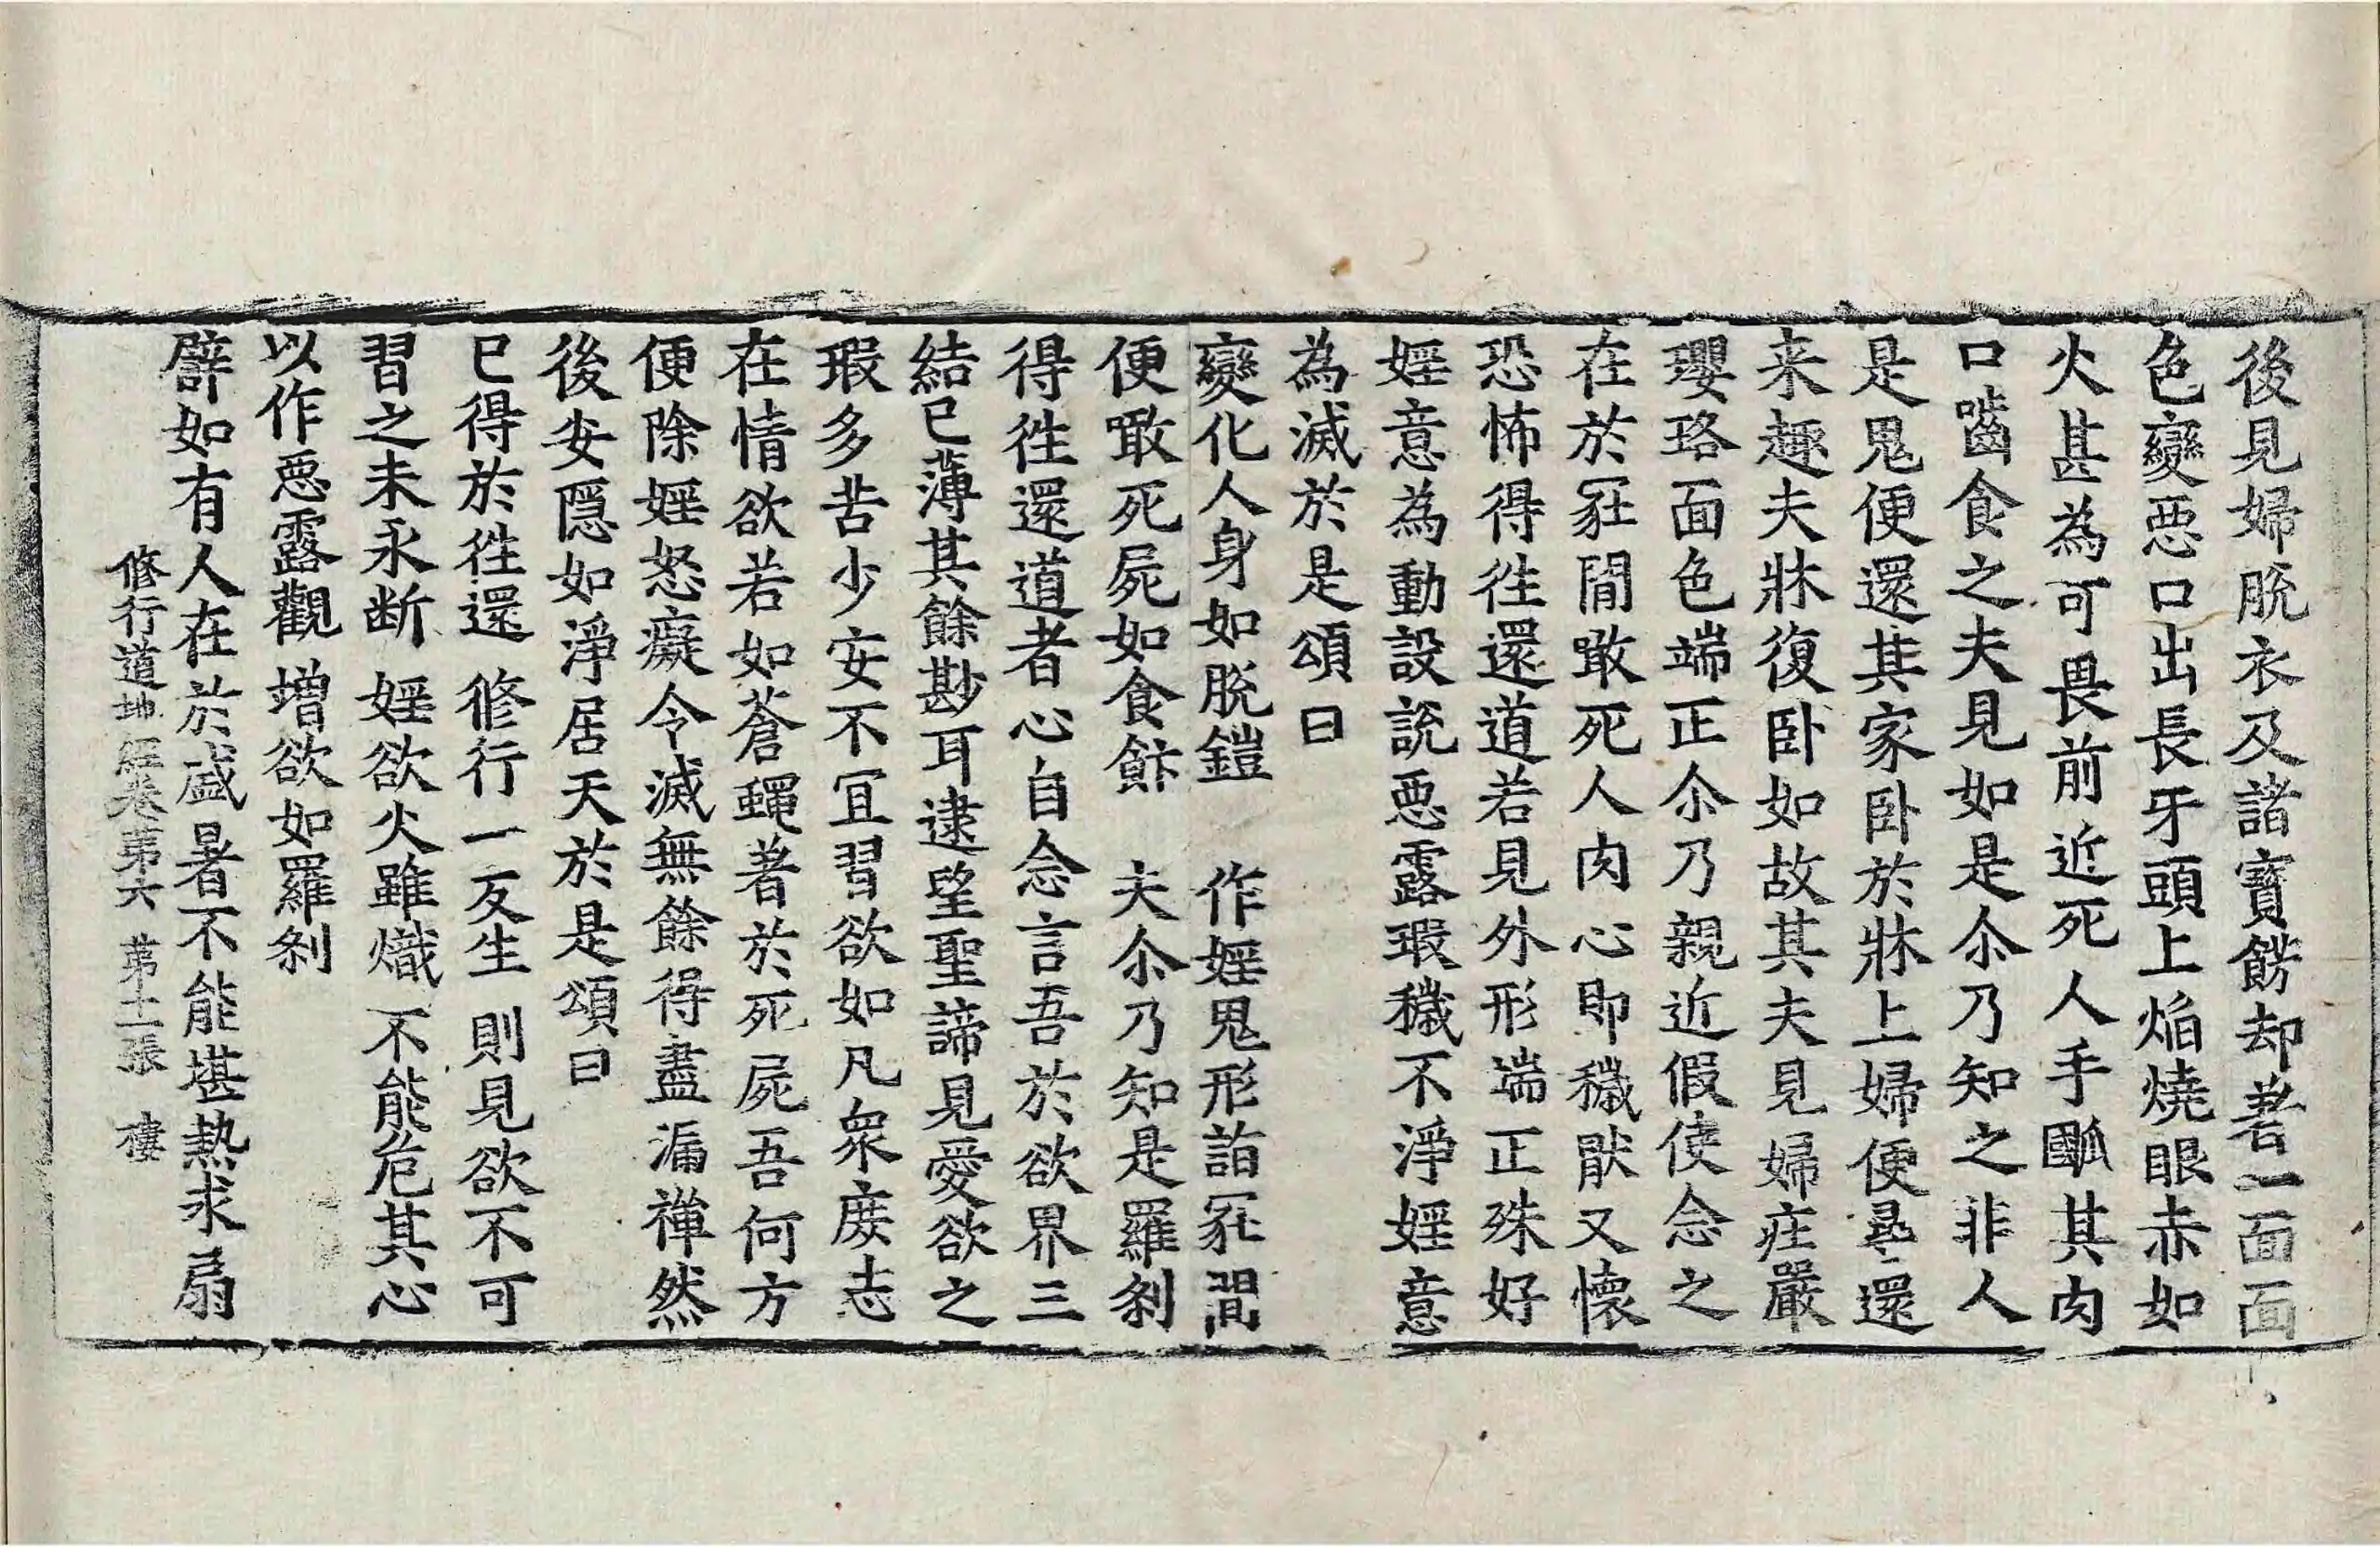 後見婦脫衣及諸寶餝却著一面面
色變惡口出長牙頭上焰燒眼赤如
火甚為可畏前近死人手䶥其肉
口嚙食之夫見如是尒乃知之非人
是鬼便還其家卧於牀上婦便尋還
来趣夫牀復卧如故其夫見婦莊嚴
瓔珞面色端正尒乃親近假使念之
在於冢間噉死人肉心即穢猒又懷
恐怖得徃還道若見外形端正殊好
婬意為動設說惡露瑕穢不淨婬意
為滅於是頌曰
變化人身如脫鎧　作婬鬼形詣冢間
便噉死屍如食飰　夫尒乃知是羅剎
得徃還道者心自念言吾於欲界三
結已薄其餘尠耳逮望聖諦見愛欲之
瑕多苦少安不冝習欲如凡衆庶志
在情欲若如蒼蠅著於死屍吾何方
便除婬怒癡令滅無餘得盡漏禪然
後安隱如淨居天於是頌曰
已得於徃還　修行一反生　則見欲不可
習之未永断　婬欲火雖熾　不能危其心
以作惡露觀　增欲如羅剎
辟如有人在於盛暑不能堪熱求扇
修行道地經卷第六　第十二張　樓